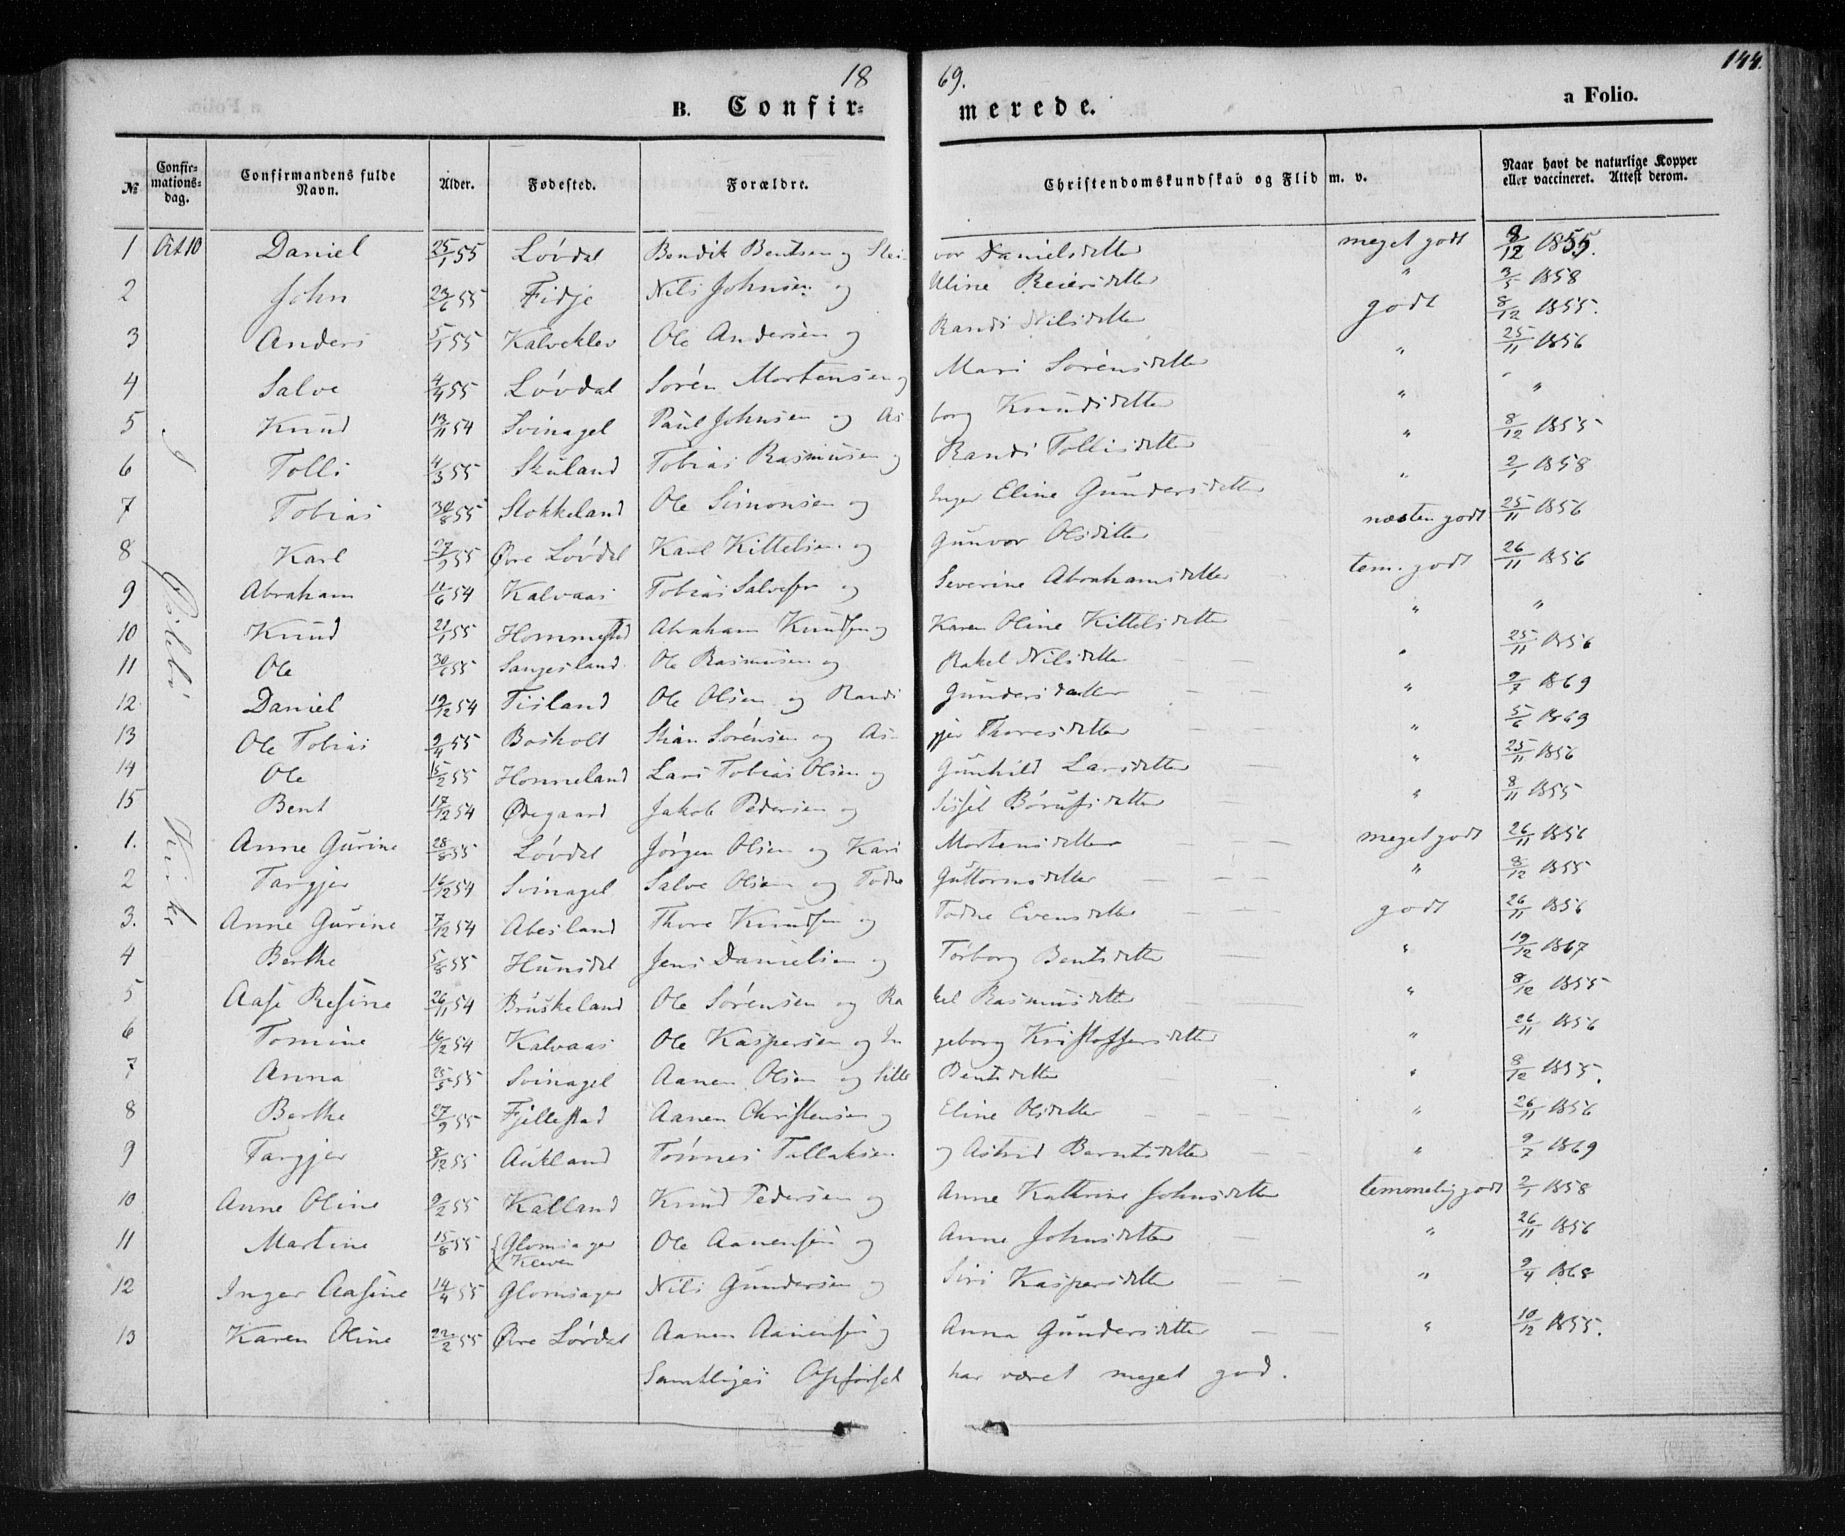 18 69. 144.
B. Confir- merede. a Folio.
№ Confir-mations-dag. Confirmandens fulde Navn. Alder. Fødested. Forældre. Christendomskundskab og Flid m. v. Naar havt de naturlige Kopper eller vaccineret. Attest derom.
1 Oct 10 Daniel 25/1 55 Løvdal Bendik Bentsen og Stei- vor Danielsdatter meget godt 8/12 1855.
2 John 23/6 55 Fidje Nils Johnsen og Oline Reiersdatter " 3/5 1858
3 Anders 5/1 55 Kalveklev Ole Andersen og Randi Nilsdatter godt 8/12 1855.
4 Salve 4/4 55 Løvdal Sørén Mortensen og Mari Sørensdatter " 25/11 1856
5 Knud 13/11 54 Svinagel Paul Johnsen og As borg Knudsdatter " "
6 Tolli 4/3 55 Skuland Tobias Rasmusen og Randi Tollisdatter " 8/12 1855
7 Tobias 30/8 55 Stokkeland Ole Simonsen og Inger Eline Gundersdatter " 2/1 1858
8 Karl 27/3 55 Øvre Løvdal Karl Kittelsen og Gunvor Olsdatter næsten godt 25/11 1856
9 Abraham 11/6 54 Kalvaas Tobias Salvesen og Severine Abrahamsdatter tem. godt 26/11 1856
10 Knud 21/1 55 Hommestad Abraham Knudsen og Karen Oline Kittelsdatter " "
11 Ole 30/6 55 Sangesland Ole Rasmusen og Rakel Nilsdatter " 25/11 1856
12 Daniel 19/12 54 Fisland Ole Olsen og Randi Gundersdatter " 9/7 1869
13 Ole Tobias 9/4 55 Bosholt Stian Sørensen og As- gjer Thoresdatter " 5/6 1869
14 Ole 15/2 55 Honneland Lars Tobias Olsen og Gunhild Larsdatter " 25/11 1856
15 Bent 17/12 54 Ødegaard Jakob Pedersen og Sissel Børufsdatter " 8/11 1855
1. Anne Gurine 28/8 55 Løvdal Jørgen Olsen og Kari Mortensdatter meget godt 26/11 1856
2 Targjer 16/12 54 Svinagel Salve Olsen og Todne Guttormsdatter " 8/12 1855
3. Anne Gurine 7/12 54 Abesland Thore Knudsen og Todne Evensdatter godt 26/11 1856
4 Berthe 5/8 55 Hunsdal Jens Danielsen og Torborg Bentsdatter " 19/12 1867
5 Aase Resine 26/11 54 Bruskeland Ole Sørensen og Ra kel Rasmusdatter " 8/12 1855
6 Tomine 16/12 54 Kalvaas Ole Kaspersen og In geborg Kristoffersdatter " 26/11 1856
7 Anna 25/5 55 Svinagel Aanen Olsen og Sille Bentsdatter " 8/12 1855.
8 Berthe 27/9 55 Fjellestad Aanen Christensen og Eline Olsdatter " 26/11 1856
9 Targjer 8/12 55 Aukland Tønnes Tallaksen og Astrid Berntsdatter " 9/7 1869
10 Anne Oline 9/2 55 Kalland Knud Pedersen og Anne Kathrine Johnsdatter temmelig godt 2/1 1858
11 Martine 15/8 55 Glomsager Kleven Ole Aanensen og Anne Johnsdatter " 26/11 1856
12 Inger Aasine 14/4 55 Glomsager Nils Gundersen og Siri Kaspersdatter " 9/4 1868
13 Karen Oline 22/2 55 Øvre Løvdal Aanen Aanensen og Anna Gundersdatter " 10/12 1855.
Samtliges Opførsel har været meget god.
Kirke